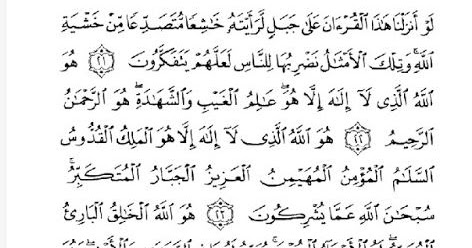 لَوْ أَنزَلْنَا هَٰذَا الْقُرْءَانَ عَلَىٰ جَبَلٍ لَّرَأَيْتَهُۥ خَٰشِعًا مُّتَصَدِّعًا مِّنْ خَشْيَةِ
اللَّهِ ۚ وَتِلْكَ الْأَمْثَٰلُ نَضْرِبُهَا لِلنَّاسِ لَعَلَّهُمْ يَتَفَكَّرُونَ ٢١ هُوَ
اللَّهُ الَّذِى لَآ إِلَٰهَ إِلَّا هُوَ ۖ عَٰلِمُ الْغَيْبِ وَالشَّهَٰدَةِ ۖ هُوَ الرَّحْمَٰنُ
الرَّحِيمُ ٢٢ هُوَ اللَّهُ الَّذِى لَآ إِلَٰهَ إِلَّا هُوَ الْمَلِكُ الْقُدُّوسُ
السَّلَٰمُ الْمُؤْمِنُ الْمُهَيْمِنُ الْعَزِيزُ الْجَبَّارُ الْمُتَكَبِّرُ ۚ
سُبْحَٰنَ اللَّهِ عَمَّا يُشْرِكُونَ ٢٣ هُوَ اللَّهُ الْخَٰلِقُ الْبَارِئُ